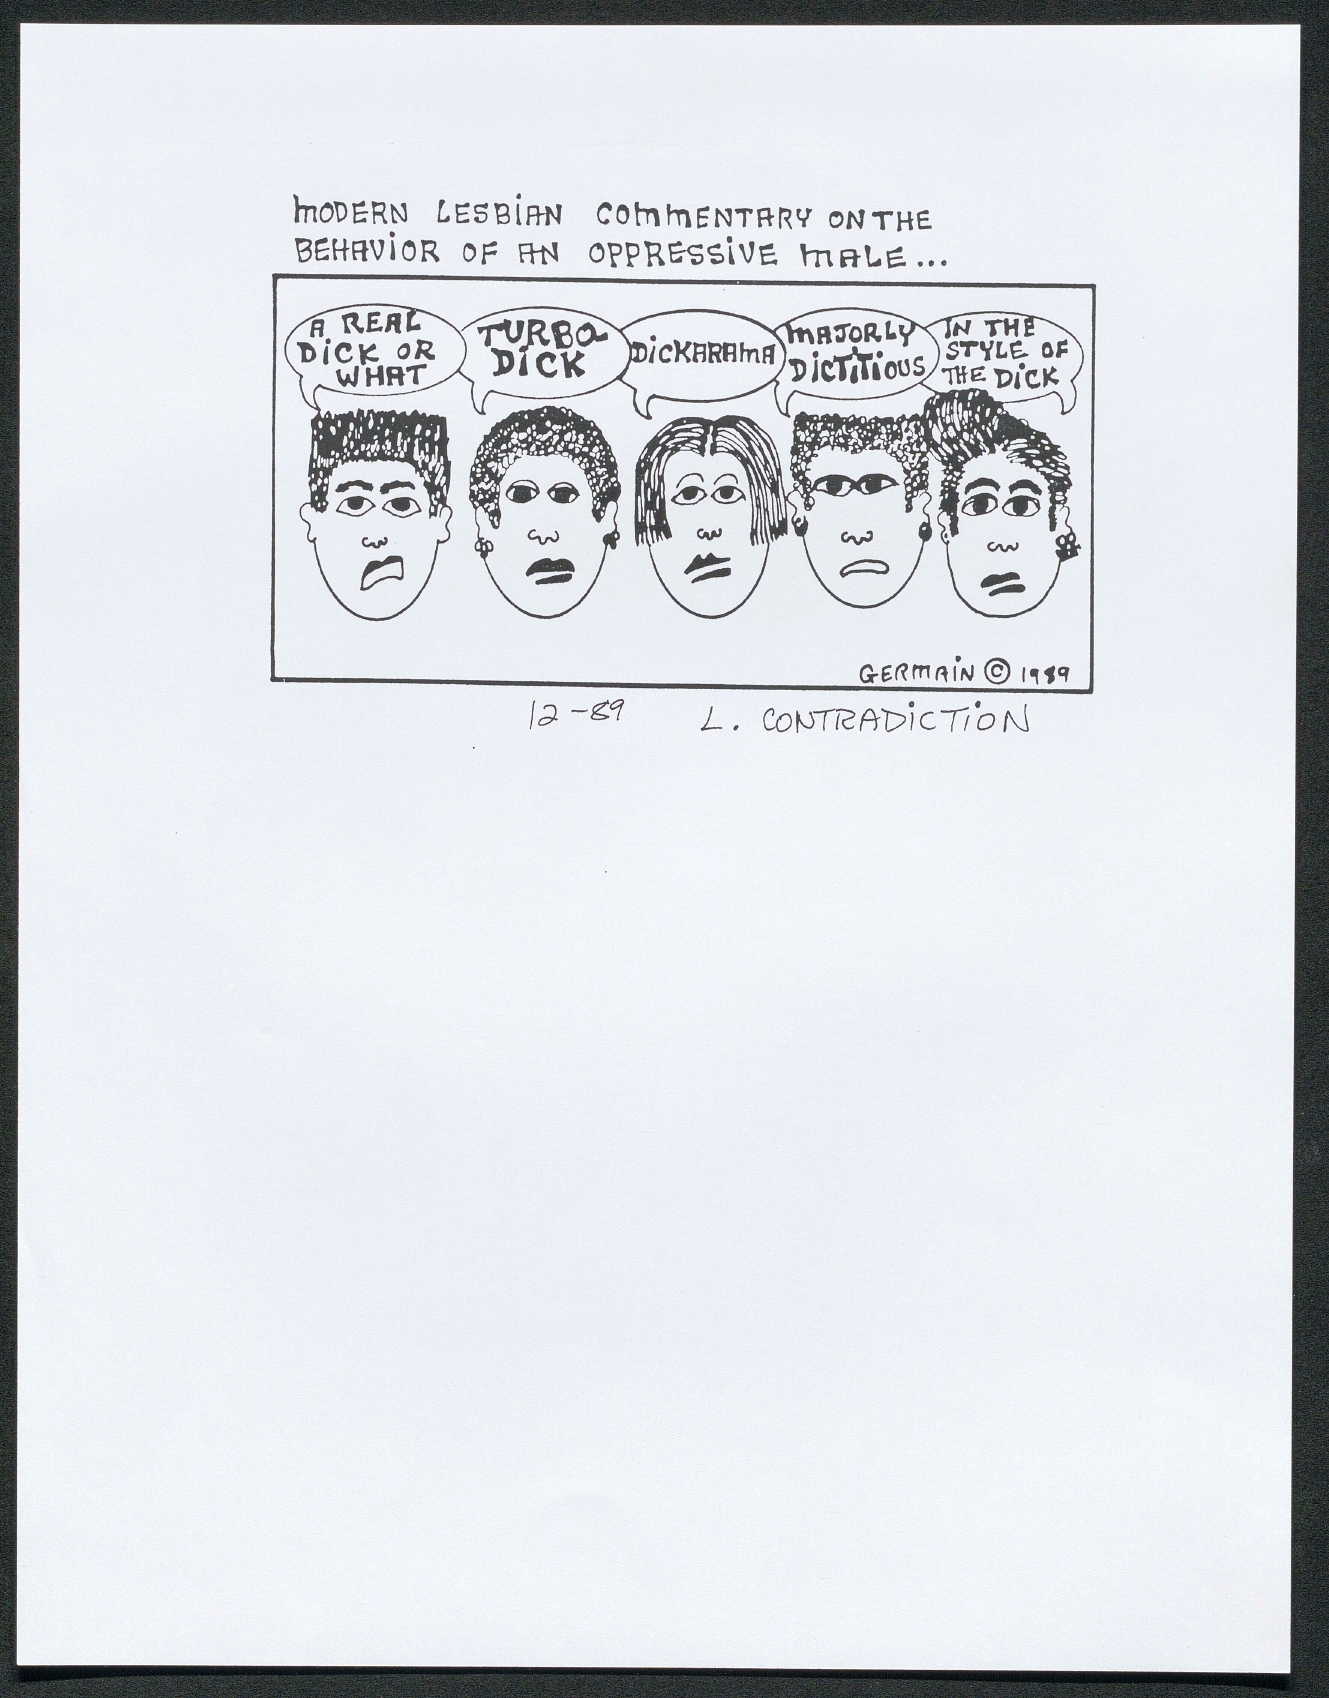 MODERN LESBIAN COMMENTARY ON THE
BEHAVIOR OF AN OPPRESSIVE MALE...
A REAL
DICK OR
WHAT
TURBO
DICK
DICKARAMA
MAJORLY
DICTITIOUS
IN THE
STYLE OF
THE DICK
GERMAIN © 1989
12-89 L. CONTRADICTION